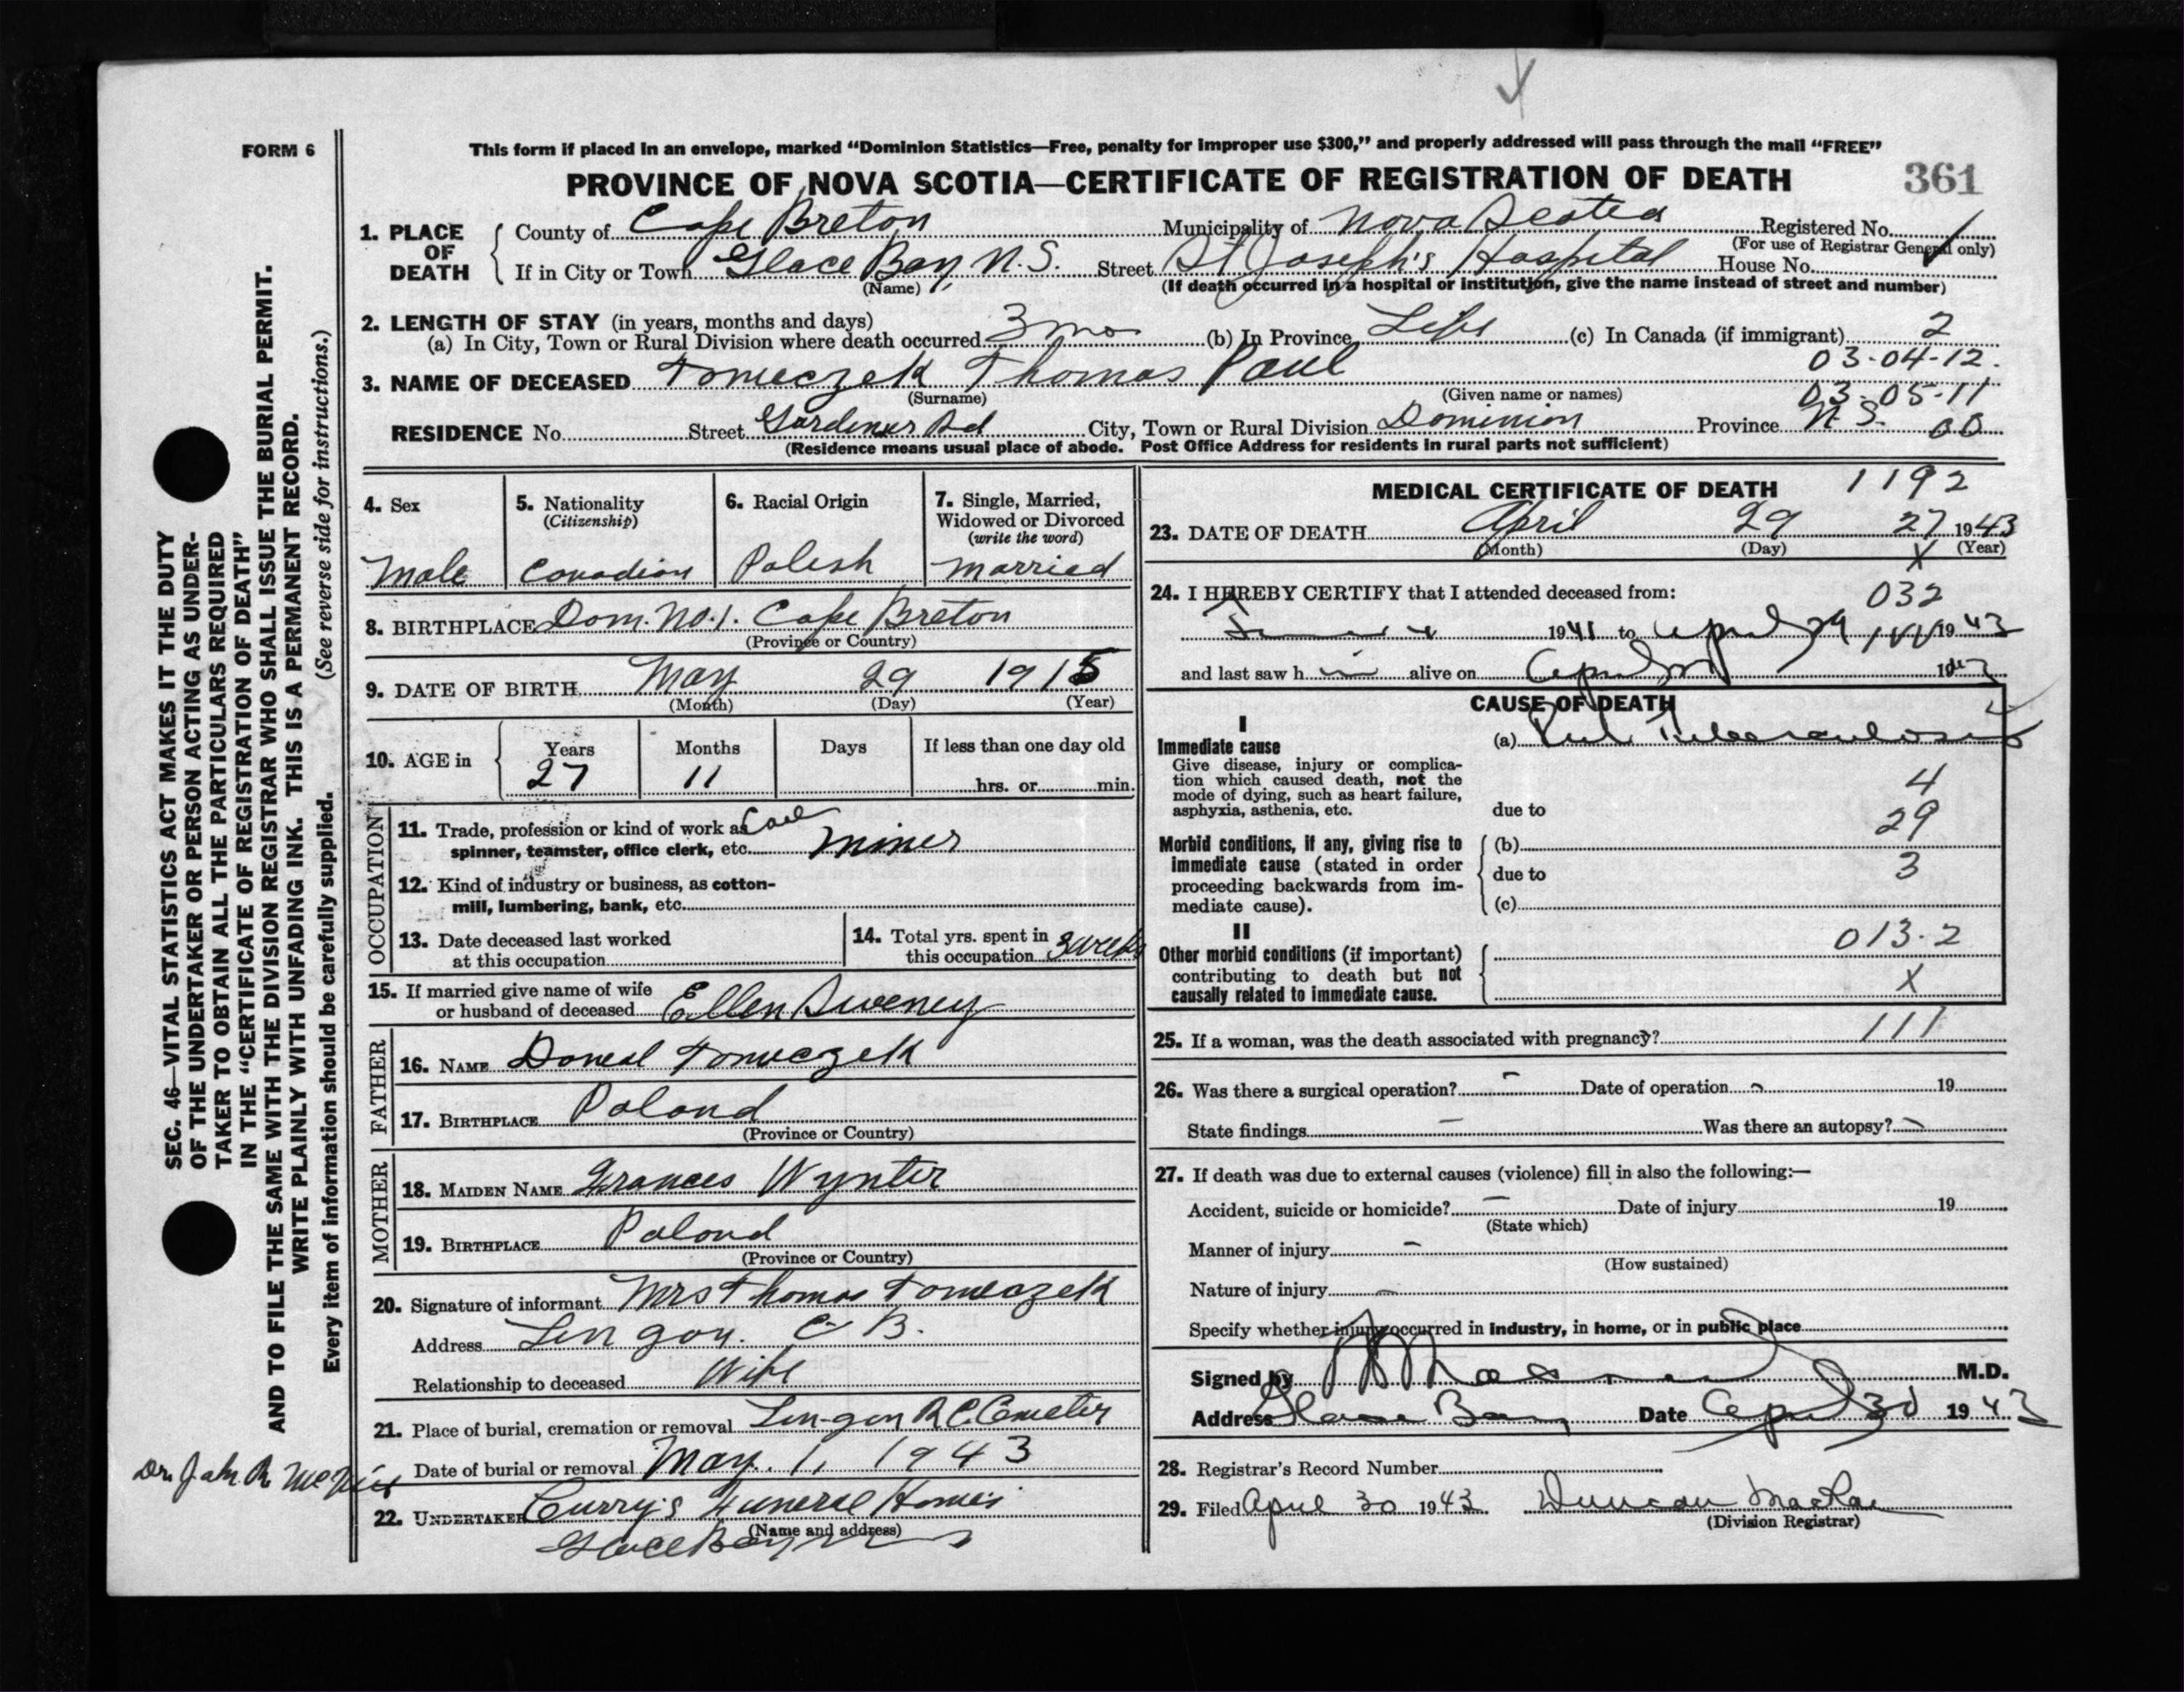 FORM 6
This form if placed in an envelope, marked “Dominion Statistics—Free, penalty for improper use $300,” and properly addressed will pass through the mail “FREE”
PROVINCE OF NOVA SCOTIA—CERTIFICATE OF REGISTRATION OF DEATH 361
1. PLACE OF DEATH
County of Cape Breton Municipality of Nova Scotia Registered No.
(For use of Registrar General only)
If in City or Town Glace Bay, N.S. Street St Joseph's Hospital House No.
(Name) (If death occurred in a hospital or institution, give the name instead of street and number)
2. LENGTH OF STAY (in years, months and days)
(a) In City, Town or Rural Division where death occurred 3 mo (b) In Province Life (c) In Canada (if immigrant) 2
03-04-12.
3. NAME OF DECEASED Tomeczek Thomas Paul
(Surname) (Given name or names) 03-05-11
RESIDENCE No. Street Gardener Rd City, Town or Rural Division Dominion Province N S. 00
(Residence means usual place of abode. Post Office Address for residents in rural parts not sufficient)
4. Sex
Male
5. Nationality
(Citizenship)
Canadian
6. Racial Origin
Polish
7. Single, Married,
Widowed or Divorced
(write the word)
Married
8. BIRTHPLACE Dom. No. 1. Cape Breton
(Province or Country)
9. DATE OF BIRTH May 29 1915
(Month) (Day) (Year)
10. AGE in Years Months Days If less than one day old
27 11 hrs. or min.
OCCUPATION
11. Trade, profession or kind of work as Coal
spinner, teamster, office clerk, etc. Miner
12. Kind of industry or business, as cotton-
mill, lumbering, bank, etc.
13. Date deceased last worked
at this occupation
14. Total yrs. spent in
this occupation 3 weeks
15. If married give name of wife
or husband of deceased Ellen Sweney
FATHER
16. NAME Doneal Tomeczek
17. BIRTHPLACE Poland
(Province or Country)
MOTHER
18. MAIDEN NAME Frances Wynter
19. BIRTHPLACE Poland
(Province or Country)
20. Signature of informant Mrs Thomas Tomeczek
Address Lingan. C B.
Relationship to deceased Wife
21. Place of burial, cremation or removal Lingan R.C. Cemeter
Date of burial or removal May. 1, 1943
22. UNDERTAKER Curry's Funeral Homes
(Name and address)
Glace Bay
MEDICAL CERTIFICATE OF DEATH 1192
23. DATE OF DEATH April 29 27 1943
(Month) (Day) X (Year)
24. I HEREBY CERTIFY that I attended deceased from: 032
1941 to April 29 1943
and last saw h im alive on April 194
CAUSE OF DEATH
I
Immediate cause
Give disease, injury or complica-
tion which caused death, not the
mode of dying, such as heart failure,
asphyxia, asthenia, etc.
(a) Pul. Tuberculosis
4
due to
29
Morbid conditions, if any, giving rise to
immediate cause (stated in order
proceeding backwards from im-
mediate cause).
(b)
due to 3
(c)
II
Other morbid conditions (if important)
contributing to death but not
causally related to immediate cause.
013-2
X
25. If a woman, was the death associated with pregnancy? 111
26. Was there a surgical operation? – Date of operation 19
State findings – Was there an autopsy?
27. If death was due to external causes (violence) fill in also the following:—
Accident, suicide or homicide? – Date of injury 19
(State which)
Manner of injury –
(How sustained)
Nature of injury –
Specify whether injury occurred in industry, in home, or in public place
Signed by M.D.
Address Glace Bay Date April 30 1943
28. Registrar's Record Number
29. Filed April 30 1943 Duncan MacRae
(Division Registrar)
SEC. 46—VITAL STATISTICS ACT MAKES IT THE DUTY
OF THE UNDERTAKER OR PERSON ACTING AS UNDER-
TAKER TO OBTAIN ALL THE PARTICULARS REQUIRED
IN THE “CERTIFICATE OF REGISTRATION OF DEATH”
AND TO FILE THE SAME WITH THE DIVISION REGISTRAR WHO SHALL ISSUE THE BURIAL PERMIT.
WRITE PLAINLY WITH UNFADING INK. THIS IS A PERMANENT RECORD.
Every item of information should be carefully supplied. (See reverse side for instructions.)
Dr. John R